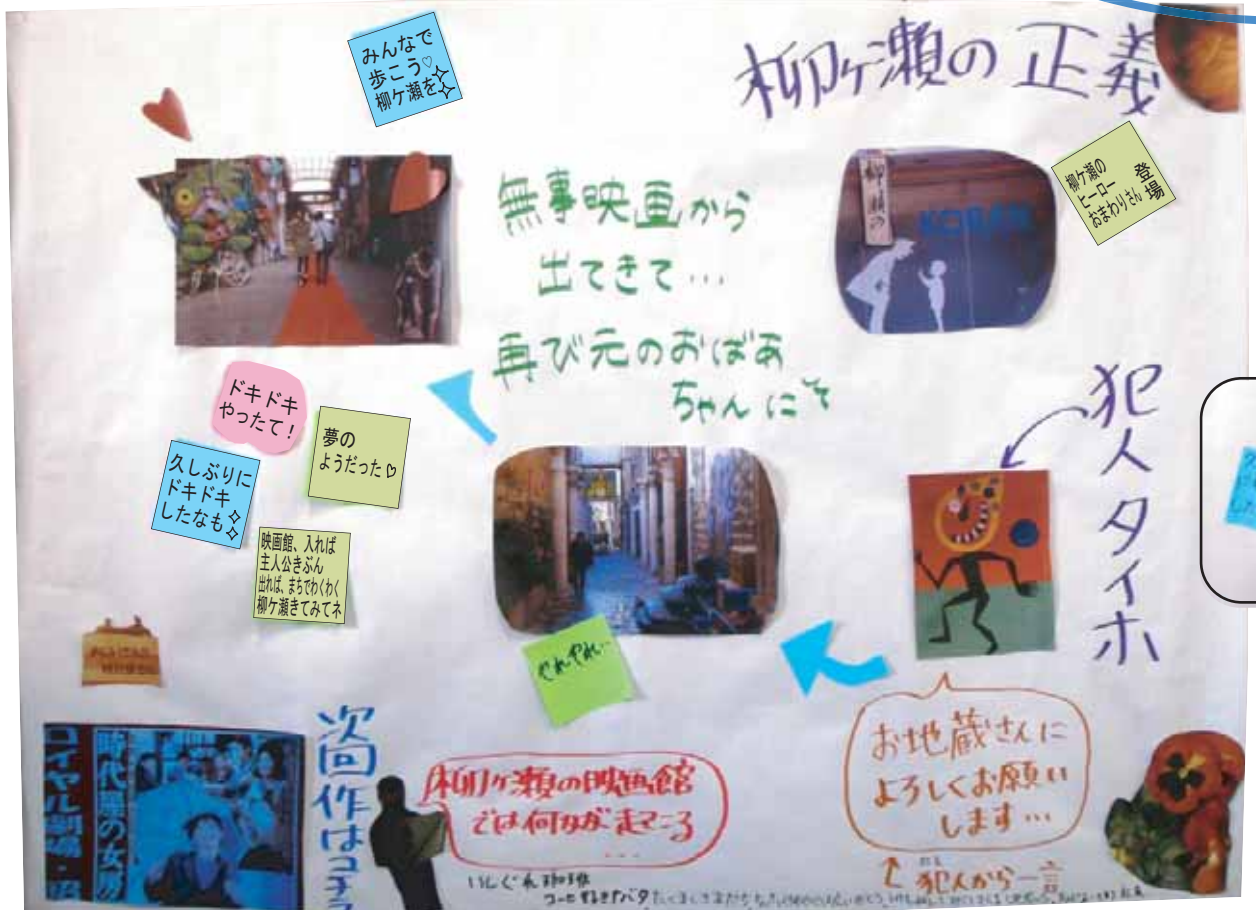 柳ケ瀬の正義
みんなで
歩こう♡
柳ケ瀬を✧
柳ケ瀬の
ヒーロー
おまわりさん
登場
KOBAN
無事映画から
出てきて…
再び元のおばあ
ちゃんに
犯人タイホ
ドキドキ
やったて!
夢の
ようだった♡
久しぶりに
ドキドキ
したなも✧
映画館、入れば
主人公きぶん
出れば、まちでわくわく
柳ケ瀬きてみてネ
やれやれ…
お地蔵さんに
よろしくお願い
します…
犯人から一言
次回作はコチラ
柳ケ瀬の映画館
では何かが起こる
…
時代屋の女房
ロイヤル劇場・昭